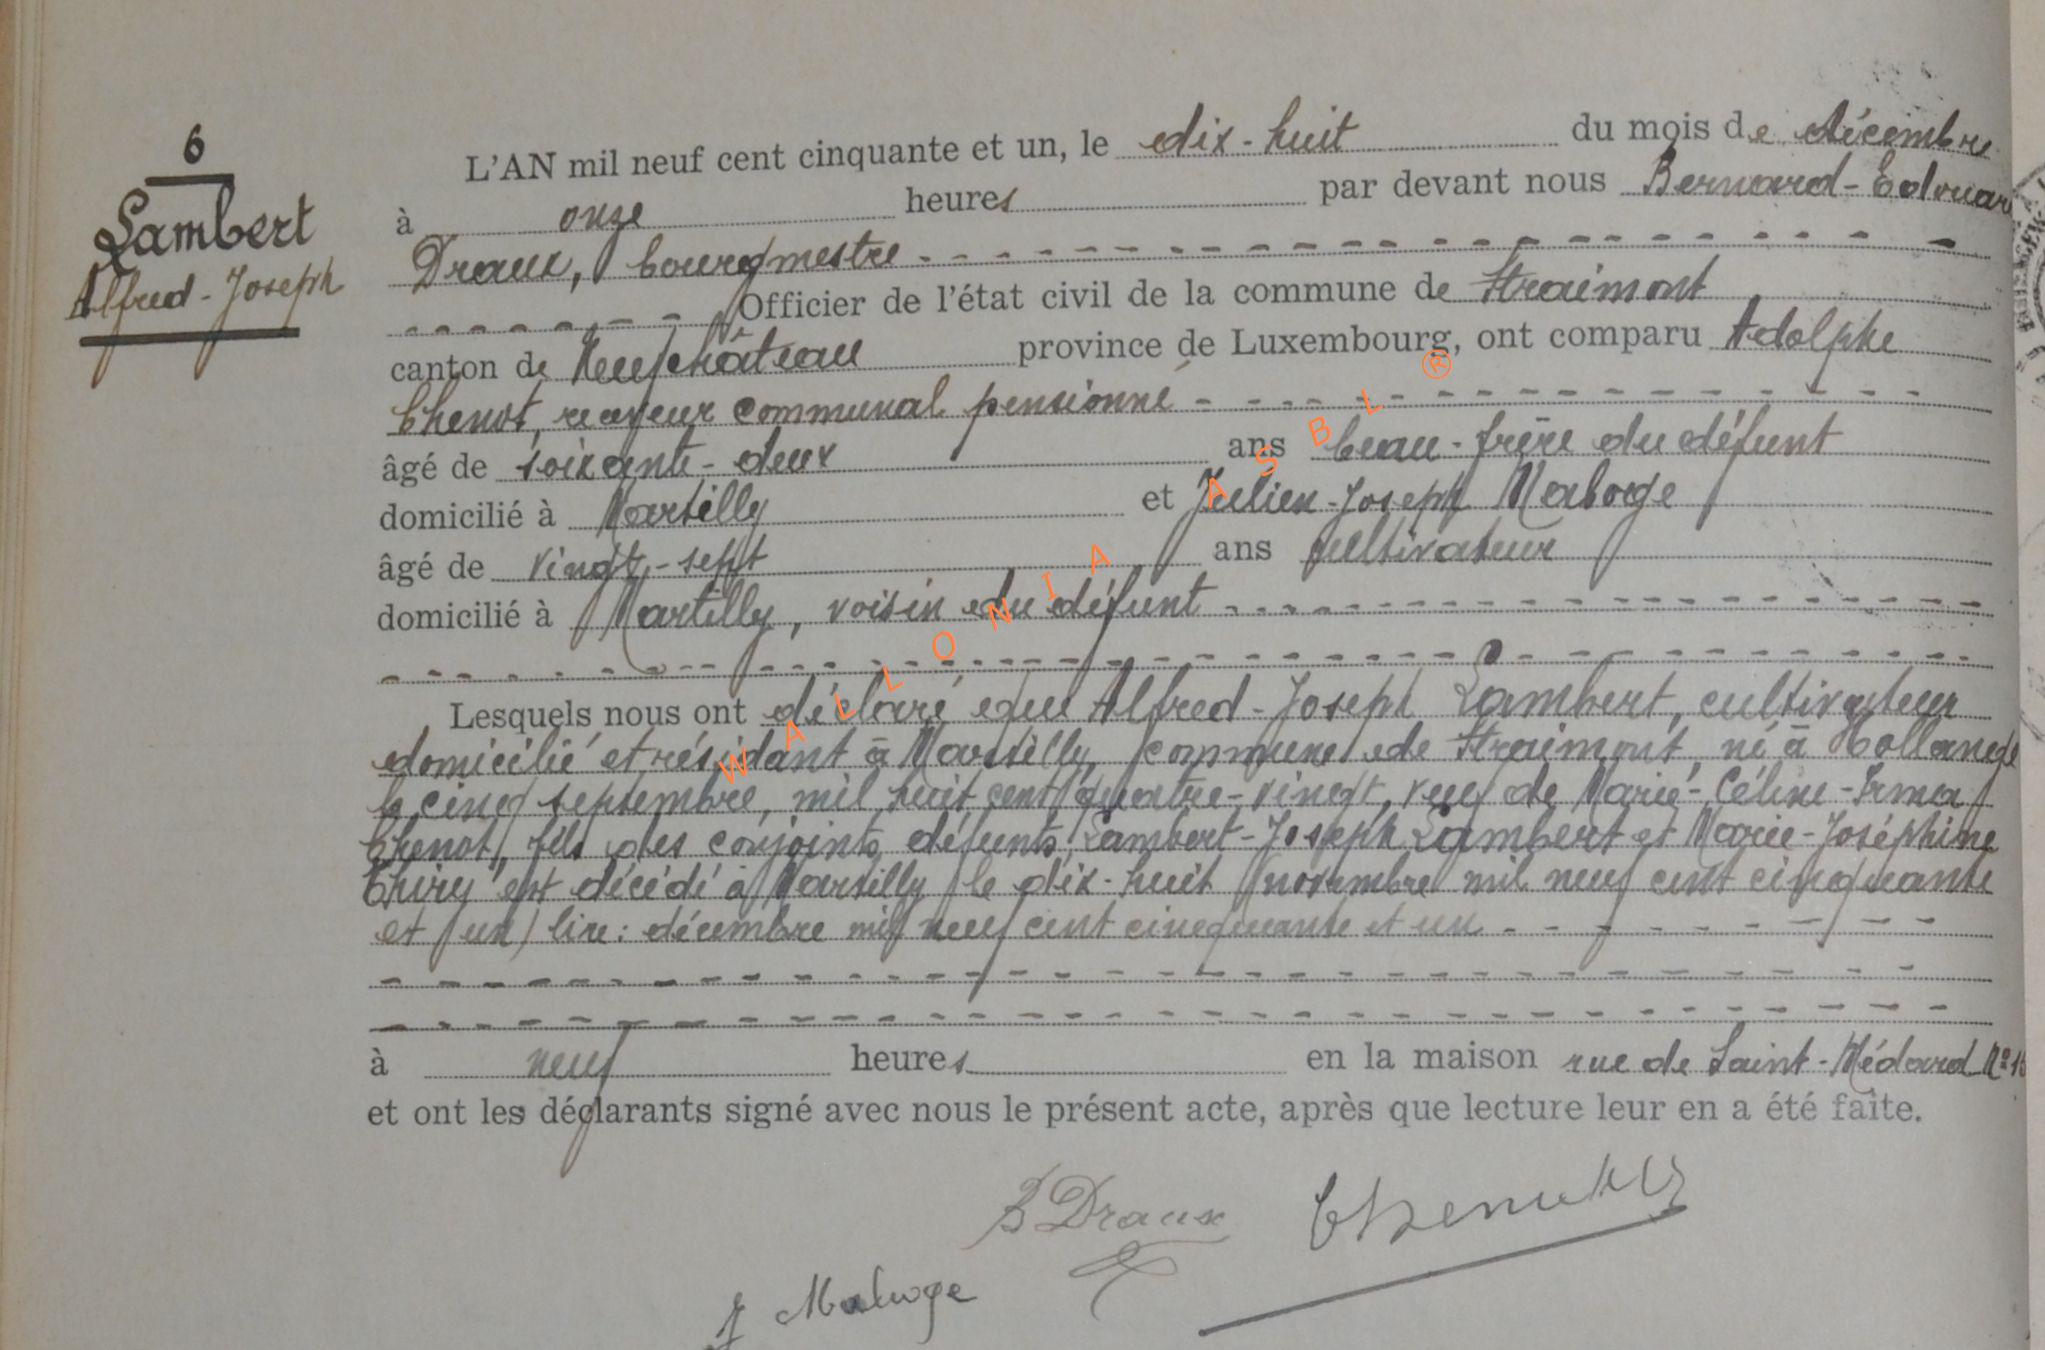 6
Lambert
Alfred-Joseph
L'AN mil neuf cent cinquante et un, le dix-huit du mois de décembre
à onze heures par devant nous Bernard-Edouar
Draux, bourgmestre
Officier de l'état civil de la commune de Straimont
canton de Neufchâteau province de Luxembourg, ont comparu Adolphe
Thenot, receveur communal pensionné
âgé de soixante-deux ans beau-frère du défunt
domicilié à Martilly et Julien-Joseph Maboge
âgé de vingt-sept ans cultivateur
domicilié à Martilly, voisin du défunt
Lesquels nous ont déclaré que Alfred-Joseph Lambert, cultivateur
domicilié et résidant à Martilly, commune de Straimont, né à Hollange
le cinq septembre, mil huit cent quatre-vingt, veuf de Marie-Céline-Irma
Thenot, fils des conjoints défunts Lambert-Joseph Lambert et Marie-Joséphine
Thiry est décédé à Martilly le dix-huit novembre mil neuf cent cinquante
et un) lire: décembre mil neuf cent cinquante et un
à neuf heures en la maison rue de Saint-Médard N°
et ont les déclarants signé avec nous le présent acte, après que lecture leur en a été faite.
B Draux
J Maboge
WALLONIA ASBL ®